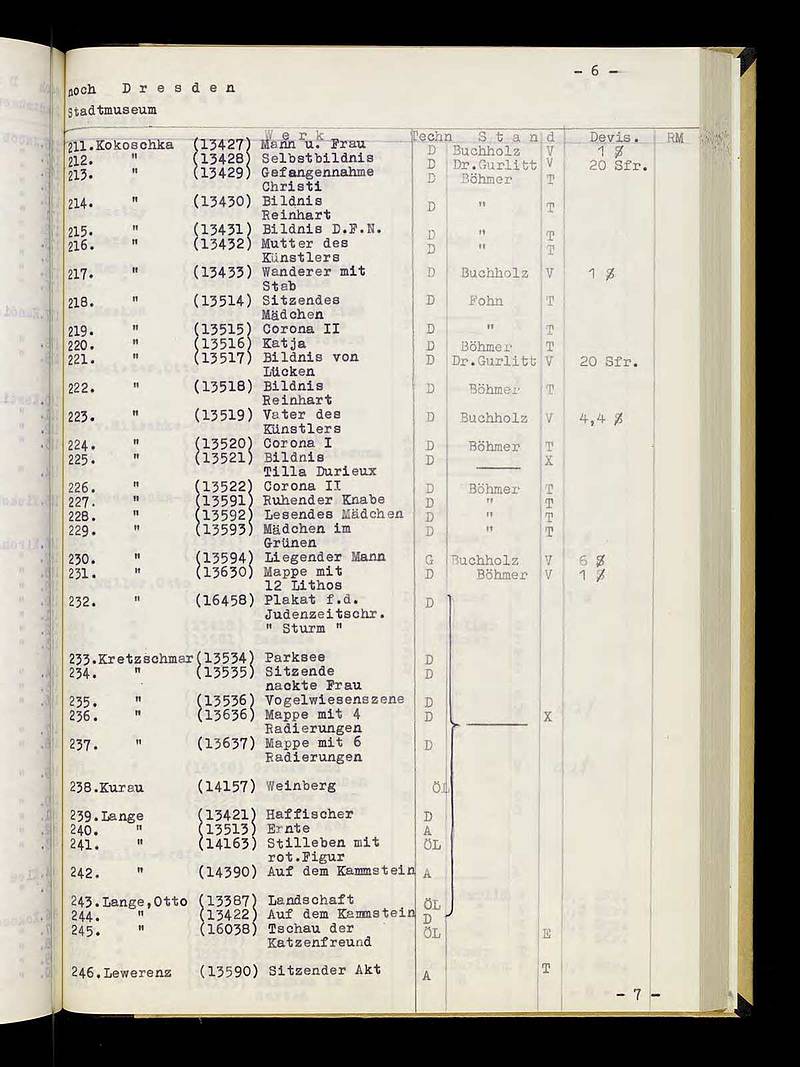 - 6 -
noch D r e s d e n
Stadtmuseum
W e r k Techn S t a n d Devis. RM
211.Kokoschka (13427) Mann u. Frau D Buchholz V 1 $
212. " (13428) Selbstbildnis D Dr.Gurlitt V 20 Sfr.
213. " (13429) Gefangennahme D Böhmer T
Christi
214. " (13430) Bildnis D " T
Reinhart
215. " (13431) Bildnis D.F.N. D " T
216. " (13432) Mutter des D " T
Künstlers
217. " (13433) Wanderer mit D Buchholz V 1 $
Stab
218. " (13514) Sitzendes D Fohn T
Mädchen
219. " (13515) Corona II D " T
220. " (13516) Katja D Böhmer T
221. " (13517) Bildnis von D Dr.Gurlitt V 20 Sfr.
Lücken
222. " (13518) Bildnis D Böhmer T
Reinhart
223. " (13519) Vater des D Buchholz V 4,4 $
Künstlers
224. " (13520) Corona I D Böhmer T
225. " (13521) Bildnis D ——— X
Tilla Durieux
226. " (13522) Corona II D Böhmer T
227. " (13591) Ruhender Knabe D " T
228. " (13592) Lesendes Mädchen D " T
229. " (13593) Mädchen im D " T
Grünen
230. " (13594) Liegender Mann G Buchholz V 6 $
231. " (13630) Mappe mit D Böhmer V 1 $
12 Lithos
232. " (16458) Plakat f.d. D
Judenzeitschr.
" Sturm "
233.Kretzschmar(13534) Parksee D
234. " (13535) Sitzende D
nackte Frau
235. " (13536) Vogelwiesenszene D
236. " (13636) Mappe mit 4 D ——— X
Radierungen
237. " (13637) Mappe mit 6 D
Radierungen
238.Kurau (14157) Weinberg ÖL
239.Lange (13421) Haffischer D
240. " (13513) Ernte A
241. " (14163) Stilleben mit ÖL
rot.Figur
242. " (14390) Auf dem Kammstein A
243.Lange,Otto (13387) Landschaft ÖL
244. " (13422) Auf dem Kammstein D
245. " (16038) Tschau der ÖL E
Katzenfreund
246.Lewerenz (13590) Sitzender Akt A T
- 7 -